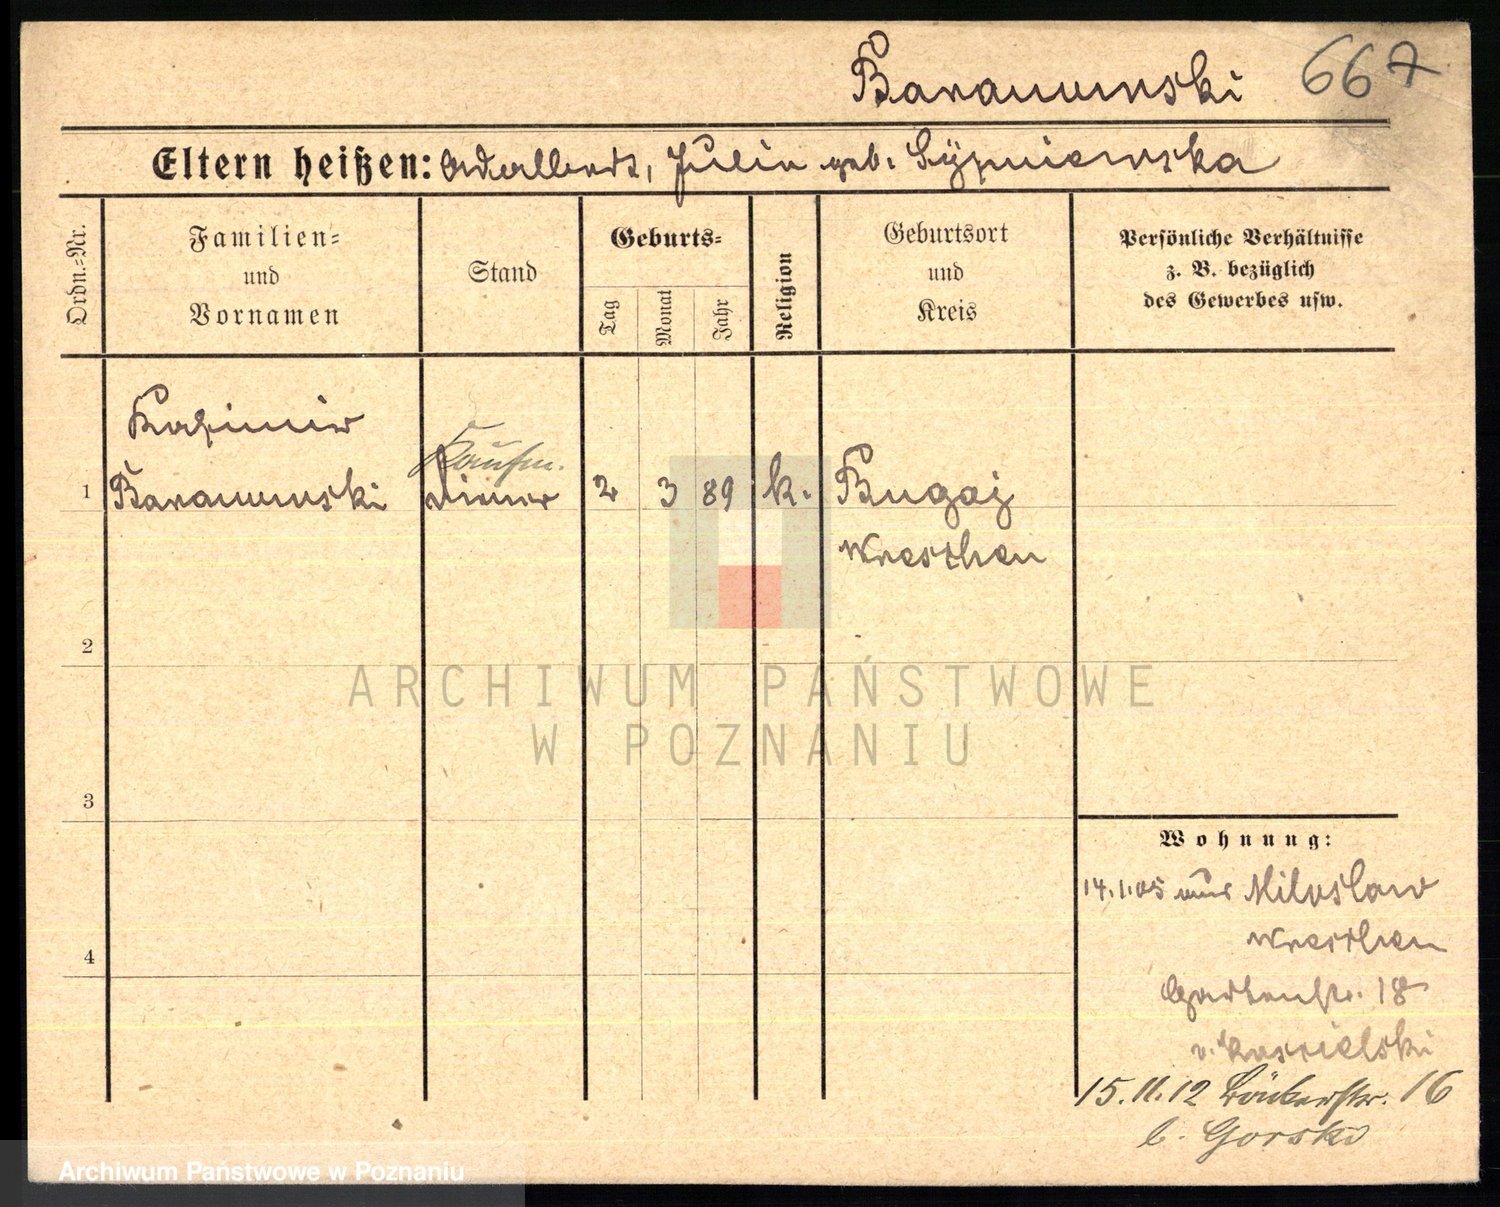 Baranowski 667
Eltern heißen: Adalbert, Julie geb. Sypniewska
Ordn.=Nr.
Familien=
und
Vornamen
Stand
Geburts=
Tag
Monat
Jahr
Religion
Geburtsort
und
Kreis
Persönliche Verhältnisse
z. B. bezüglich
des Gewerbes usw.
Kasimir
Kaufm.
1 Baranowski Diener 2 3 89 k. Bugaj
Wreschen
2
ARCHIWUM PAŃSTWOWE
W POZNANIU
3
Wohnung:
14.1.05 aus Miloslaw
Wreschen
4
Gartenstr. 18
v. Koscielski
15.11.12 16
b. Gorski
Archiwum Państwowe w Poznaniu